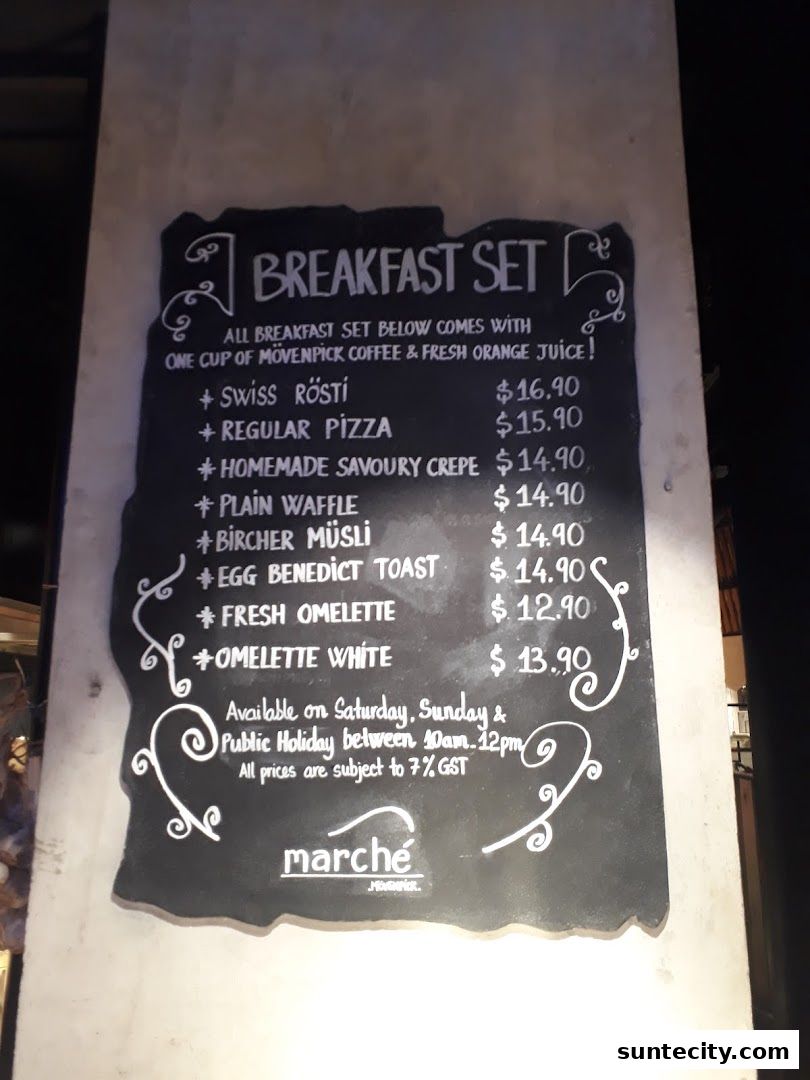 BREAKFAST SET
ALL BREAKFAST SET BELOW COMES WITH
ONE CUP OF MÖVENPICK COFFEE & FRESH ORANGE JUICE!
* SWISS RÖSTI $16.90
* REGULAR PIZZA $15.90
* HOMEMADE SAVOURY CREPE $14.90
* PLAIN WAFFLE $14.90
* BIRCHER MÜSLI $14.90
* EGG BENEDICT TOAST $14.90
* FRESH OMELETTE $12.90
* OMELETTE WHITE $13.90
Available on Saturday, Sunday &
Public Holiday between 10am-12pm
All prices are subject to 7% GST
marché
MÖVENPICK
suntecity.com